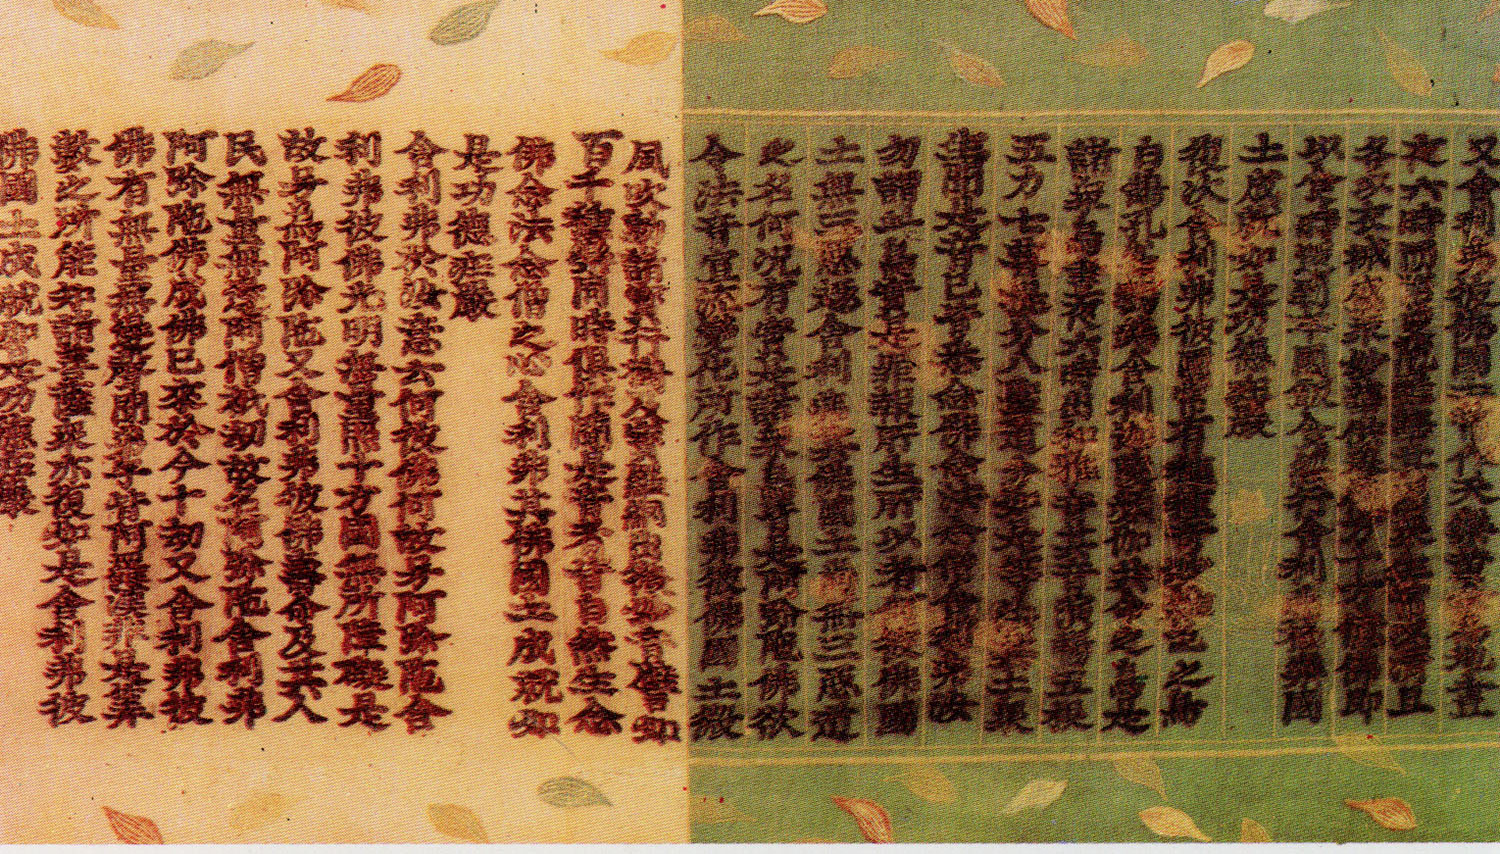 又舍利弗彼佛國土常作天樂黃金為地晝
夜六時而雨曼陀羅華其國眾生常以清旦
各以衣裓盛眾妙華供養他方十万億佛即
以食時還到本國飯食經行舍利弗極樂國
土成就如是功德莊嚴
復次舍利弗彼國常有種種奇妙雜色之鳥
白鵠孔雀鸚鵡舍利迦陵頻伽共命之鳥是
諸眾鳥晝夜六時出和雅音其音演暢五根
五力七菩提分八聖道分如是等法其土眾
生聞是音已皆悉念佛念法念僧舍利弗汝
勿謂此鳥實是罪報所生所以者何彼佛國
土無三惡趣舍利弗其佛國土尚無三惡道
之名何況有實是諸眾鳥皆是阿弥陀佛欲
令法音宣流變化所作舍利弗彼佛國土微
風吹動諸寶行樹及寶羅網出微妙音譬如
百千種樂同時俱作聞是音者皆自然生念
佛念法念僧之心舍利弗其佛國土成就如
是功德莊嚴
舍利弗於汝意云何彼佛何故号阿弥陀舍
利弗彼佛光明無量照十方國無所障礙是
故号為阿弥陀又舍利弗彼佛壽命及其人
民無量無邊阿僧祇劫故名阿弥陀舍利弗
阿弥陀佛成佛已來於今十劫又舍利弗彼
佛有無量無邊聲聞弟子皆阿羅漢非是筭
數之所能知諸菩薩眾亦復如是舍利弗彼
佛國土成就如是功德莊嚴